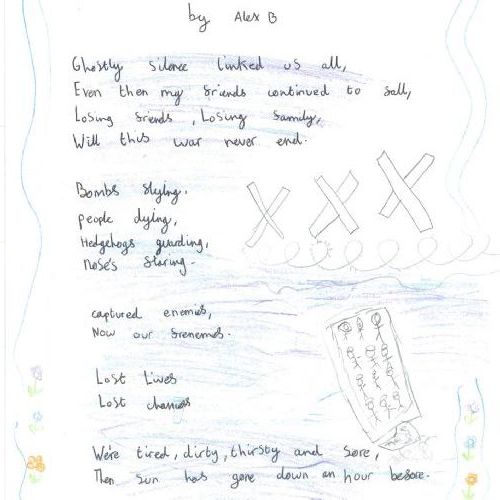 by Alex B
Ghostly silence linked us all,
Even then my friends continued to fall,
Losing frends, Losing family,
Will this war never end.
Bombs flying.
people dying,
Hedgehogs guarding,
Nose's staring.
captured enemies,
Now our frenemes.
Lost Lives
Lost chances
We're tired, dirty, thirsty and sore,
Then Sun has gone down an hour before.